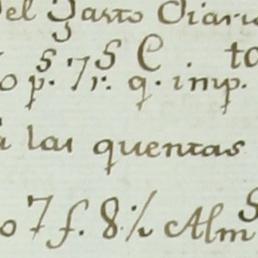 el Gasto Diari
s s C to
o p. 7r. q. imp.
a las quentas
o 7 f. 8 % Alm s